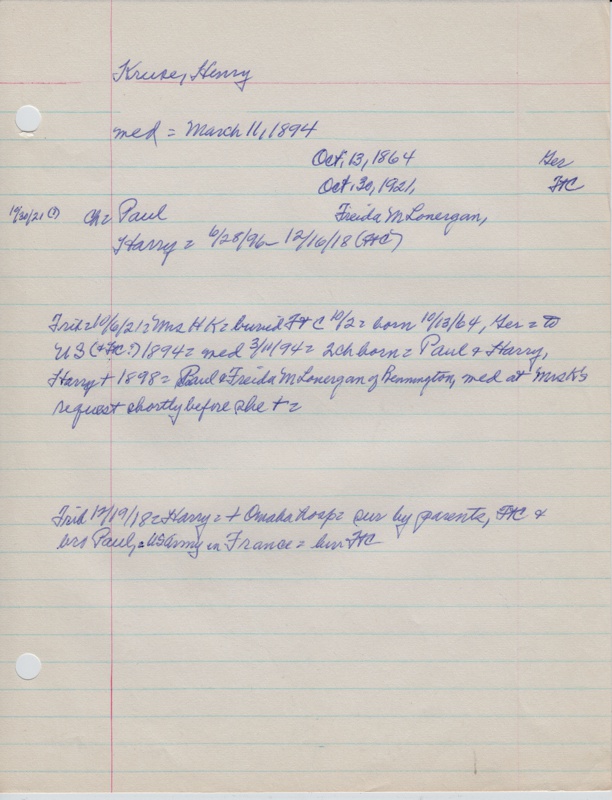 Kruse, Henry
med = March 11, 1894
Oct. 13, 1864 Ger
Oct. 30, 1921, FtC
10/30/21 (?) Ch = Paul Freida M Lonergan,
Harry = 6/28/96 - 12/16/18 (FtC)
Frid = 10/6/21 = Mrs H K = buried Ft C 10/2 = born 10/13/64, Ger = to
US (+ Ft C?) 1894 = med 3/11/94 = 2 ch born = Paul & Harry,
Harry + 1898 = Paul & Freida M Lonergan of Bennington, med at Mrs K's
request shortly before she + =
Frid 12/19/18 = Harry = + Omaha hosp = sur by parents, FtC &
bro Paul, = US Army in France = bur FtC